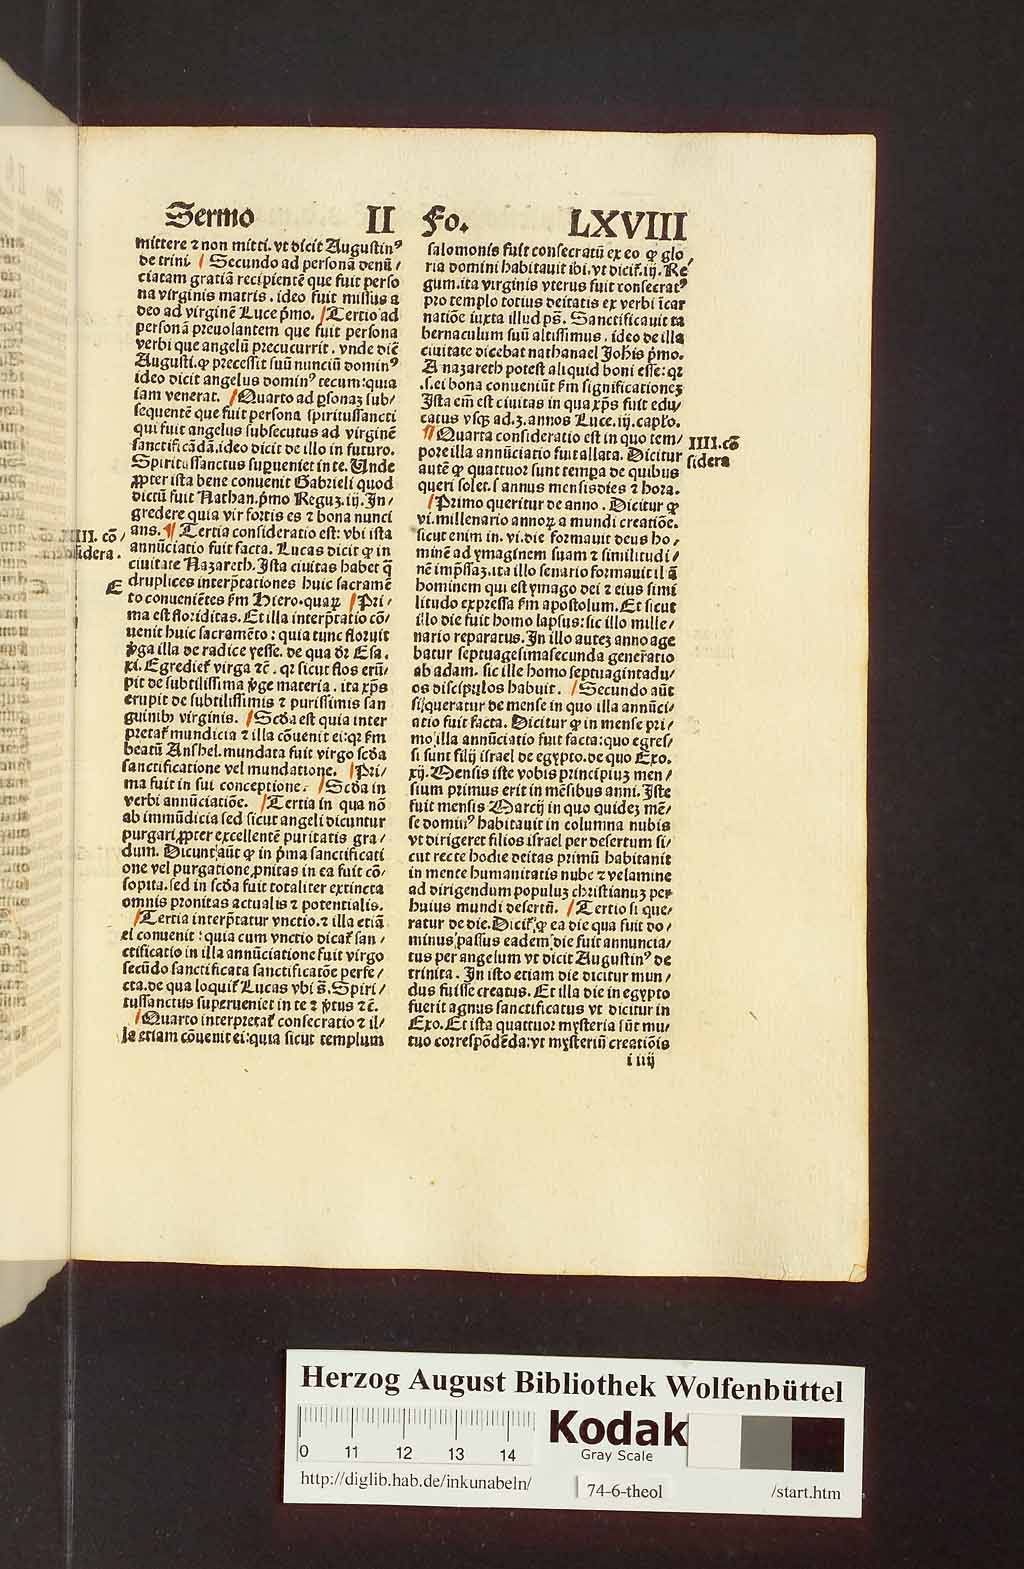 Sermo II Fo. LXVIII
mittere ⁊ non mitti. vt dicit Augustinꝰ
de trini. Secundo ad personā denū/
ciatam gratiā recipientē que fuit perso
na virginis matris. ideo fuit missus a
deo ad virginē Luce pͥmo. Tertio ad
personā preuolantem que fuit persona
verbi que angelū precucurrit. vnde dic̄
Augusti. ꝙ precessit suū nunciū dominꝰ
ideo dicit angelus dominꝰ tecum: quia
iam venerat. Quarto ad ꝑsonaꝫ sub/
sequentē que fuit persona spiritussancti
qui fuit angelus subsecutus ad virginē
sanctificādā. ideo dicit de illo in futuro.
Spiritussanctus suꝑueniet in te. Unde
ꝓpter ista bene conuenit Gabrieli quod
dictū fuit Nathan. pͥmo Reguꝫ. iij. In/
gredere quia vir fortis es ⁊ bona nunci
ans. ¶ Tertia consideratio est: vbi ista
annūciatio fuit facta. Lucas dicit ꝙ in
ciuitate Nazareth. Ista ciuitas habet q̄
druplices interp̄tationes huic sacramē
to conueniētes ẜm Hiero. quaꝝ Pri/
ma est floriditas. Et illa interp̄tatio cō/
uenit huic sacramēto: quia tunc floruit
v̓ga illa de radice yesse. de qua dr̄ Esa.
xi. Egredietᷣ virga ⁊c̄. qꝛ sicut flos erū/
pit de subtilissima v̓ge materia. ita xp̄s
erupit de subtilissimis ⁊ purissimis san
guinibꝫ virginis. Scd̓a est quia inter
pretatᷣ mundicia ⁊ illa cōuenit ei: qꝛ ẜm
beatū Anshel. mundata fuit virgo scd̓a
sanctificatione vel mundatione. Pri/
ma fuit in sui conceptione. Scd̓a in
verbi annūciatiōe. Tertia in qua nō
ab immūdicia sed sicut angeli dicuntur
purgari ꝓpter excellentē puritatis gra/
dum. Dicunt aūt ꝙ in pͥma sanctificati
one vel purgatione ꝓnitas in ea fuit cō/
sopita. sed in scd̓a fuit totaliter extincta
omnis pronitas actualis ⁊ potentialis.
Tertia interp̄tatur vnctio. ⁊ illa etiā
ei conuenit: quia cum vnctio dicatᷣ san/
ctificatio in illa annūciatione fuit virgo
secūdo sanctificata sanctificatōe perfe/
cta. de qua loquitᷣ Lucas vbi s̄. Spiri/
tussanctus superueniet in te ⁊ v̓tus ⁊c̄.
Quarto interpretatᷣ consecratio ⁊ il/
la etiam cōuenit ei: quia sicut templum
IIII. cō/
sidera.
E
salomonis fuit consecratū ex eo ꝙ glo/
ria domini habitauit ibi. vt dicitᷣ. iij. Re
gum. ita virginis vterus fuit consecratꝰ
pro templo totius deitatis ex verbi īcar
natiōe iuxta illud ps̄. Sanctificauit ta
bernaculum suū altissimus. ideo de illa
ciuitate dicebat nathanael Joh̄is pͥmo.
A nazareth potest aliquid boni esse: qꝛ
.s. ei bona conueniūt ẜm significationeꝫ
Ista em̄ est ciuitas in qua xp̄s fuit edu/
catus vsqꝫ ad. 3. annos Luce. iij. capl̓o.
¶ Quarta consideratio est in quo tem/
pore illa annūciatio fuit allata. Dicitur
autē ꝙ quattuor sunt temꝑa de quibus
queri solet. s annus mensis dies ⁊ hora.
Primo queritur de anno. Dicitur ꝙ
vi. millenario annoꝝ a mundi creatiōe.
sicut enim in. vi. die formauit deus ho/
minē ad ymaginem suam ⁊ similitudi/
nē imp̄ssaꝫ. ita illo senario formauit illū
hominem qui est ymago dei ⁊ eius simi
litudo expressa ẜm apostolum. Et sicut
illo die fuit homo lapsus: sic illo mille/
nario reparatus. In illo auteꝫ anno age
batur septuagesimasecunda generatio
ab adam. sic ille homo septuagintadu/
os discipulos habuit. Secundo aūt
si queratur de mense in quo illa annūci/
atio fuit facta. Dicitur ꝙ in mense pri/
mo illa annūciatio fuit facta: quo egres/
si sunt filij israel de egypto. de quo Exo.
xij. Mensis iste vobis principiuꝫ men/
sium primus erit in mēsibus anni. Iste
fuit mensis Marcij in quo quideꝫ mē/
se dominꝰ habitauit in columna nubis
vt dirigeret filios israel per desertum si/
cut recte hodie deitas primū habitauit
in mente humanitatis nube ⁊ velamine
ad dirigendum populuꝫ christianuꝫ per
huius mundi desertū. Tertio si que/
ratur de die. Dicitᷣ ꝙ ea die qua fuit do/
minus passus eadem die fuit annuncia/
tus per angelum vt dicit Augustinꝰ de
trinita. In isto etiam die dicitur mun/
dus fuisse creatus. Et illa die in egypto
fuerit agnus sanctificatus vt dicitur in
Exo. Et ista quattuor mysteria sūt mu/
tuo correspōdēda: vt mysteriū creatiōis
i iiij
IIII. cō
sidera
Herzog August Bibliothek Wolfenbüttel
0 11 12 13 14
Kodak
Gray Scale
http://diglib.hab.de/inkunabeln/ 74-6-theol /start.htm